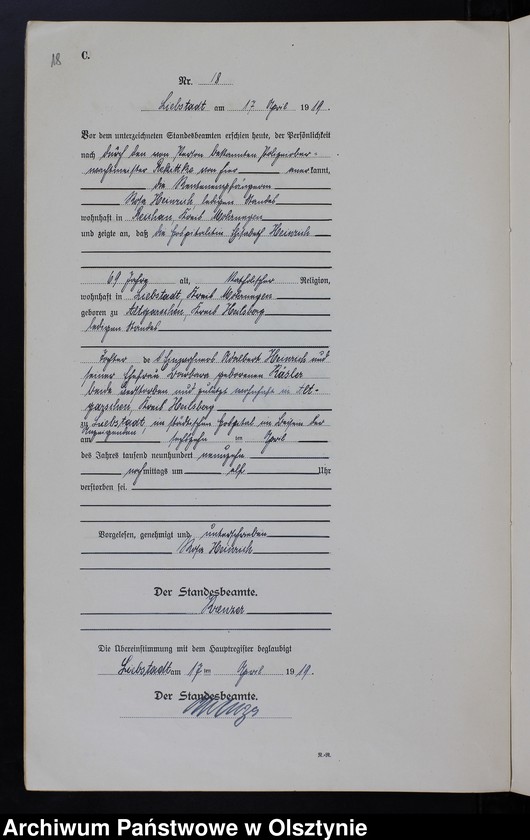 18
C.
Nr. 18
Liebstadt am 17 April 1919.
Vor dem unterzeichneten Standesbeamten erschien heute, der Persönlichkeit
nach durch den von Person bekannten Polizeiober-
wachtmeister von hier anerkannt,
die Rentenempfängerin
Rosa Heinrich, ledigen Standes
wohnhaft in Kreis Mohrungen
und zeigte an, daß die Hospitalitin Elisabeth Heinrich
69 Jahre alt, katholischer Religion,
wohnhaft in Liebstadt, Kreis Mohrungen
geboren zu Altgarschen, Kreis Heilsberg
ledigen Standes
Tochter des Adalbert Heinrich und
seiner Ehefrau Barbara geborenen Käsler
beide verstorben und zuletzt wohnhaft in Alt-
garschen, Kreis Heilsberg
zu Liebstadt, im städtischen Hospital im Beisein der
Anzeigenden
am sechszehn ten April
des Jahres tausend neunhundert neunzehn
nachmittags um elf Uhr
verstorben sei.
Vorgelesen, genehmigt und unterschrieben
Rosa Heinrich
Der Standesbeamte.
Die Übereinstimmung mit dem Hauptregister beglaubigt
Liebstadt am 17 ten April 1919.
Der Standesbeamte.
Archiwum Państwowe w Olsztynie